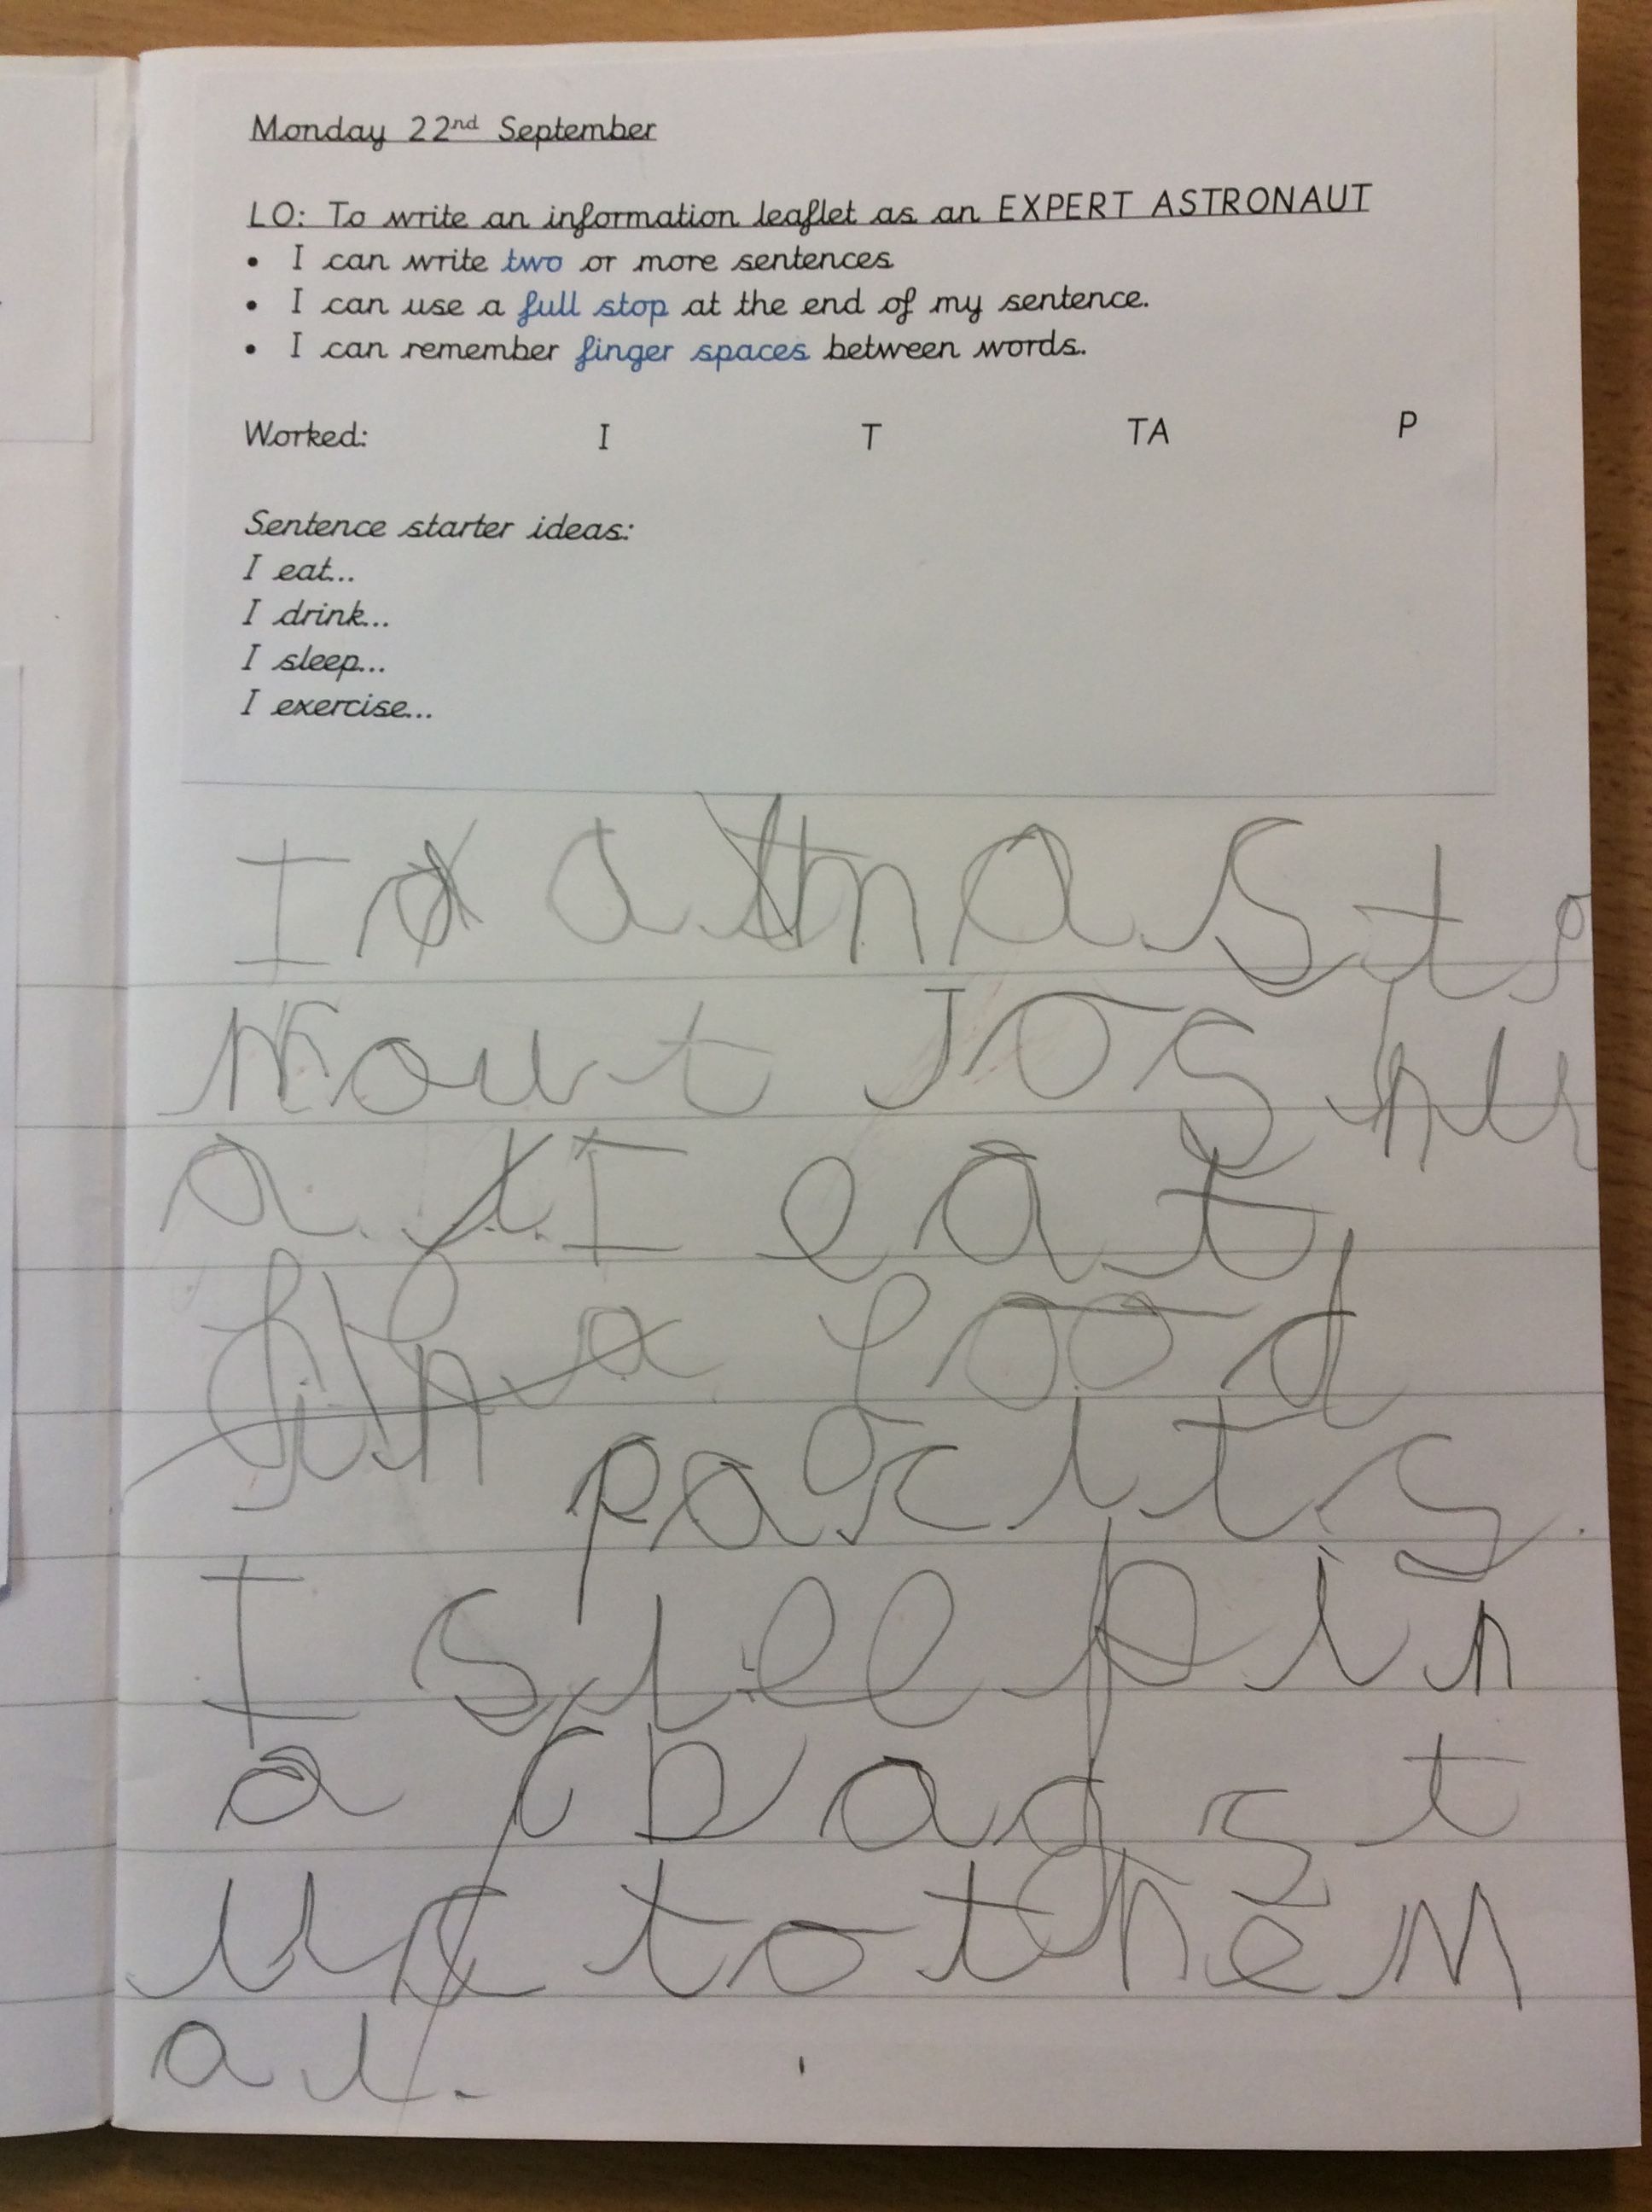 Monday 22nd September
LO: To write an information leaflet as an EXPERT ASTRONAUT
• I can write two or more sentences
• I can use a full stop at the end of my sentence.
• I can remember finger spaces between words.
Worked: I T TA P
Sentence starter ideas:
I eat...
I drink...
I sleep...
I exercise...
I a m astr
nowt Joshu
a. I eat
food
pacits.
I sleep in
a bag st
uc to the w
al.